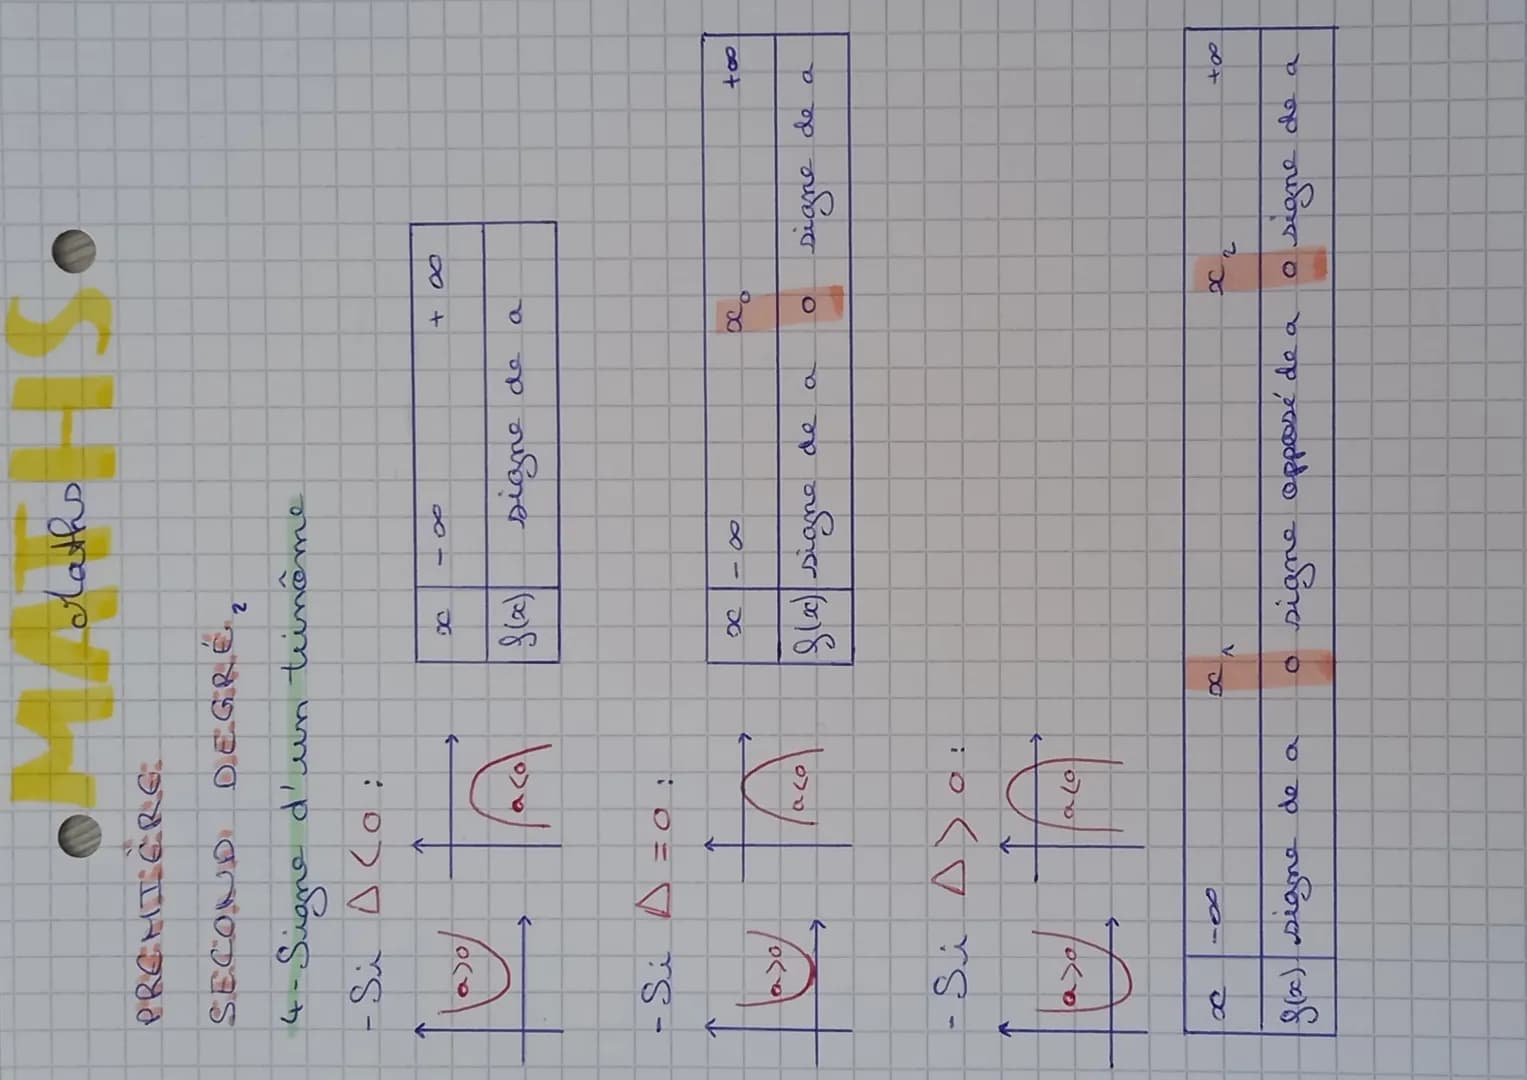 MATHS
Maths
PREMIÈRE
SECOND DEGRÉ 2
4 - Signe d'un trinôme
- Si Δ < 0 :
a>0
a<0
x -∞ +∞
f(x) signe de a
- Si Δ = 0 :
a>0
a<0
x -∞ x₀ +∞
f(x) signe de a 0 signe de a
- Si Δ > 0 :
a>0
a<0
x -∞ x₁ x₂ +∞
f(x) signe de a 0 signe opposé de a 0 signe de a